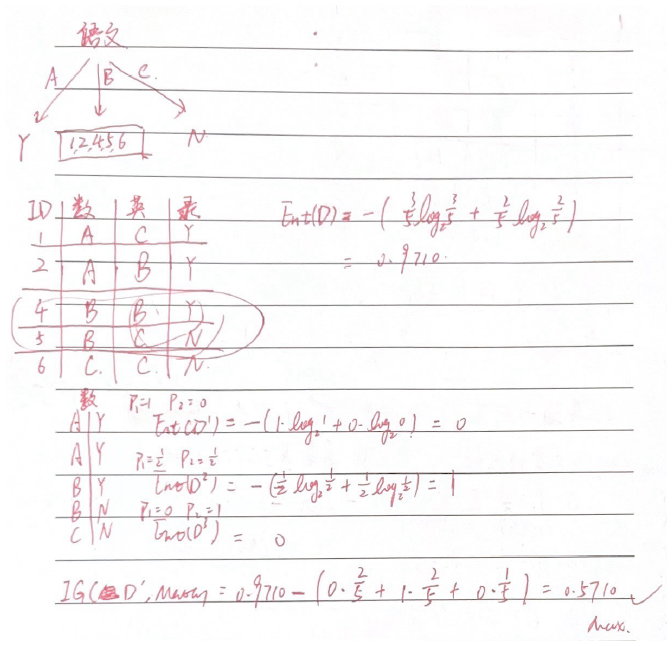 語文
A B C.
Y 1,2,4,5,6 N
ID 数 英 录
1 A C Y
2 A B Y
4 B B Y
5 B C N
6 C. C. N.
Ent(D) = -( 3/5 log₂ 3/5 + 2/5 log₂ 2/5 )
= 0.9710.
数 P₁=1 P₂=0
A Y Ent(D¹) = -(1·log₂1 + 0·log₂0) = 0
A Y P₁=1/2 P₂=1/2
B Y Ent(D²) = -(1/2 log₂ 1/2 + 1/2 log₂ 1/2) = 1
B N P₁=0 P₂=1
C N Ent(D³) = 0
IG( D', ) = 0.9710 - (0·2/5 + 1·2/5 + 0·1/5) = 0.5710 ✓
max.